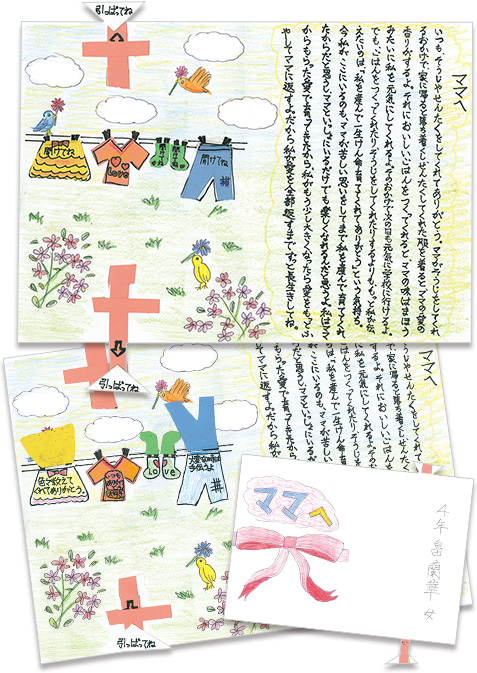 引っぱってね
ママへ
いつも、そうじやせんたくをしてくれてありがとう。ママがそうじをしてくれ
るおかげで、家に帰ると落ち着くし、せんたくしてくれた服を着ると、ママの愛の
香りがするよ。それにおいしいごはんをつくってくれると、ママの味はまほう
みたいに私を元気にしてくれるよ。そのおかげで次の日も元気に学校に行けるよ。
でも、ごはんをつくってくれたり、そうじをしてくれたりするよりも、もっと私が伝
えたいのは、「私を産んで一生けん命育ててくれてありがとう」という気持ち。
今、私がここにいるのも、ママが苦しい思いをしてまで私を産んで育ててくれ
たからだと思うし、ママといっしょにいるだけでも楽しくなれるんだと思うよ。私はママ
からもらった愛で育ってきたから、私がもう少し大きくなったら愛をもっとふ
やしてママに返すよ。だから、私が愛を全部返すまで、ずっと長生きしてね。
開けてね
Love
開けてね
開けてね
引っぱってね
ママへ
うじやせんたくをしてくれて
で、家に帰ると落ち着くし、せんたく
するよ。それにおいしいごはん
に私を元気にしてくれるよ。その
ごはんをつくってくれたり、そうじを
は、「私を産んで一生けん命
がここにいるのも、ママが苦しい
だと思うし、ママといっしょにいるだけ
もらった愛で育ってきたから、私が
てママに返すよ。だから、私が
色々教えて
くれてありがとう。
いつも
ありがとう
Love
大変な時は
手伝うよ
引っぱってね
ママへ
4年 畠 蘭華 女